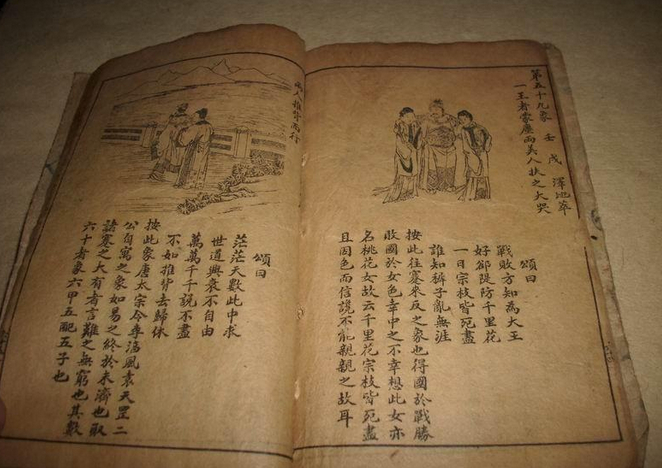 第五十九象 壬戌 澤地萃
一王者蒙塵両美人扶之大哭
頌曰
戰敗方知為大王
好卻隄防千里花
一日宗枝皆死盡
誰知稱子亂無涯
按此往蹇來反之象也得國於戰勝
敗國於女色幸中之不幸想此女亦
名桃花女故云千里花宗枝皆死盡
且因色而信說不能親親之故耳
両人推背而行
頌曰
茫茫天數此中求
世道興衰不自由
萬萬千千說不盡
不如推背去歸休
按此象唐太宗令李淳風袁天罡二
公自寓之象如易之終於未濟也取
諸蹇之大有者言難之無窮也其數
六十者象六甲五配五子也